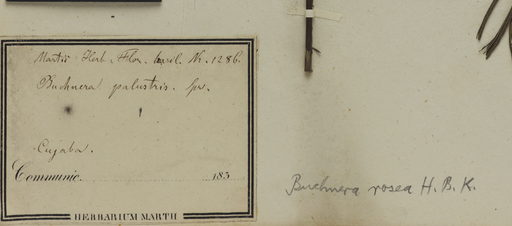 Martii Herb. Flor. brasil. Nr. 1286.
Buchnera palustris. Spr.
Cujaba.
Communic. 183
HERBARIUM MARTII
Buchnera rosea H. B. K.